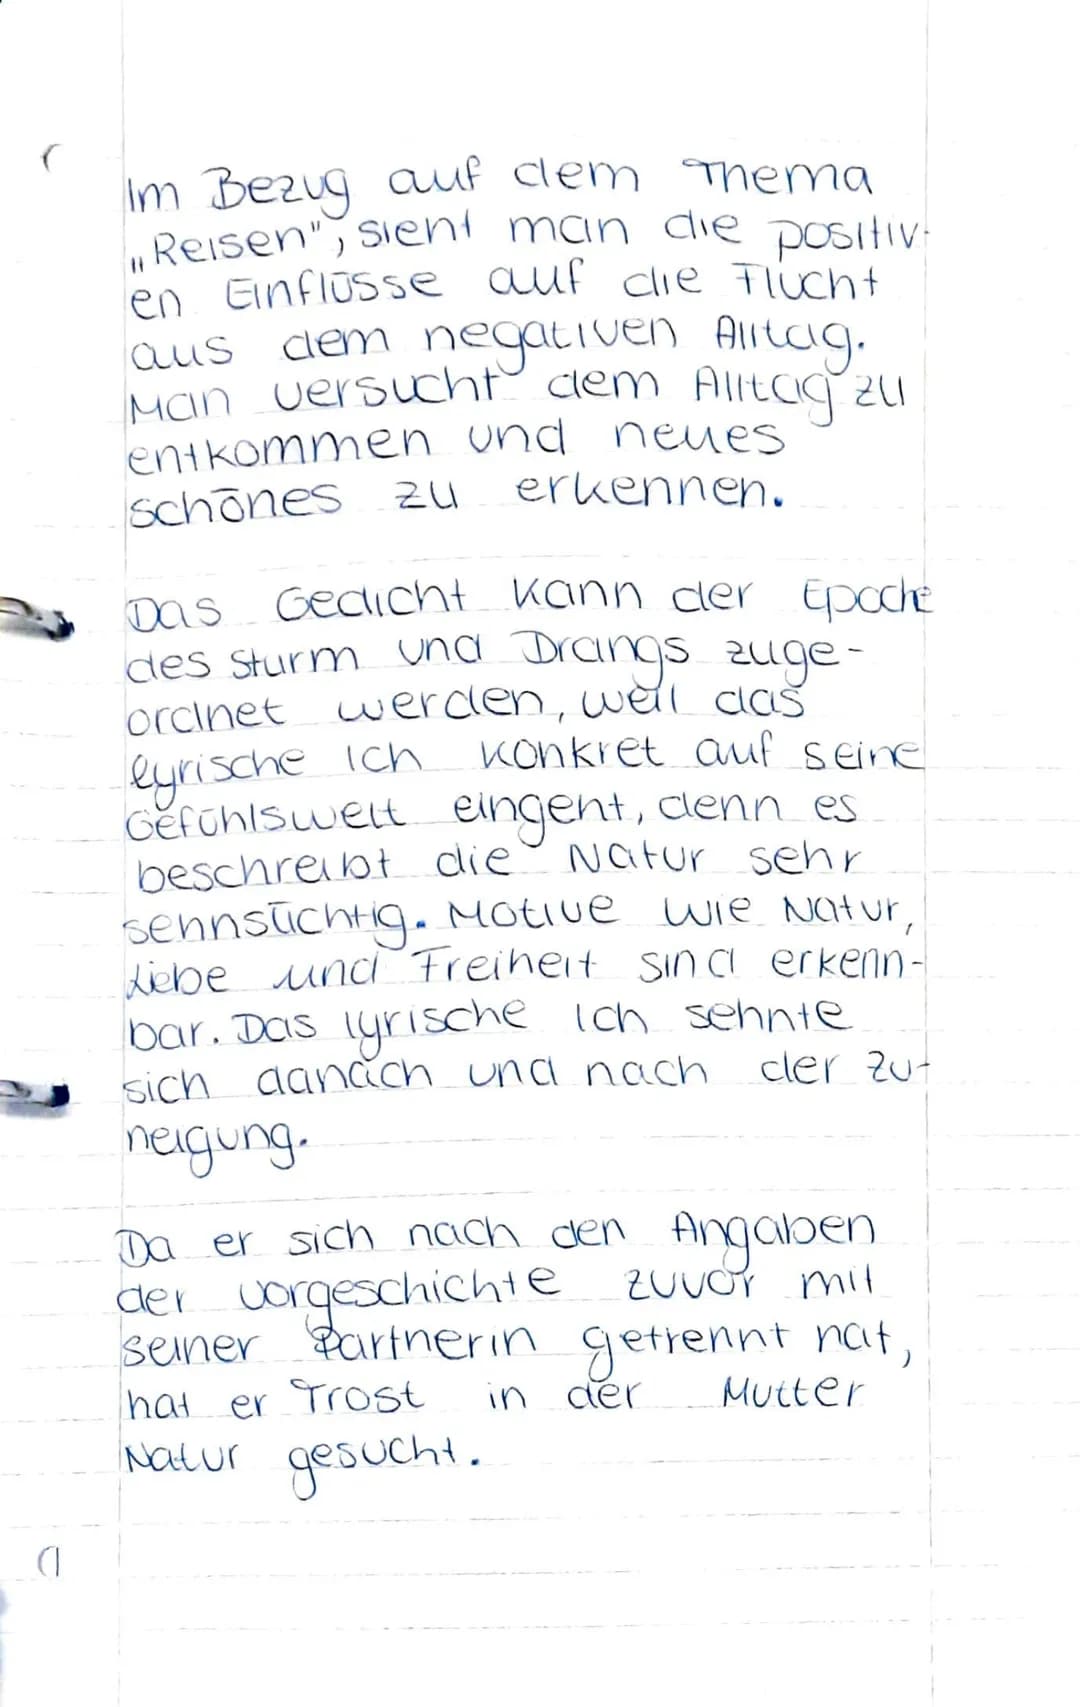 Im Bezug auf dem Thema
„Reisen", sieht man die positiv-
en Einflüsse auf die Flucht
aus dem negativen Alltag.
Man versucht dem Alltag zu
entkommen und neues
schönes zu erkennen.
Das Gedicht kann der Epoche
des Sturm und Drangs zuge-
ordnet werden, weil das
lyrische Ich konkret auf seine
Gefühlswelt eingeht, denn es
beschreibt die Natur sehr
sehnsüchtig. Motive wie Natur,
Liebe und Freiheit sind erkenn-
bar. Das lyrische Ich sehnte
sich danach und nach der Zu-
neigung.
Da er sich nach den Angaben
der Vorgeschichte zuvor mit
seiner Partnerin getrennt hat,
hat er Trost in der Mutter
Natur gesucht.